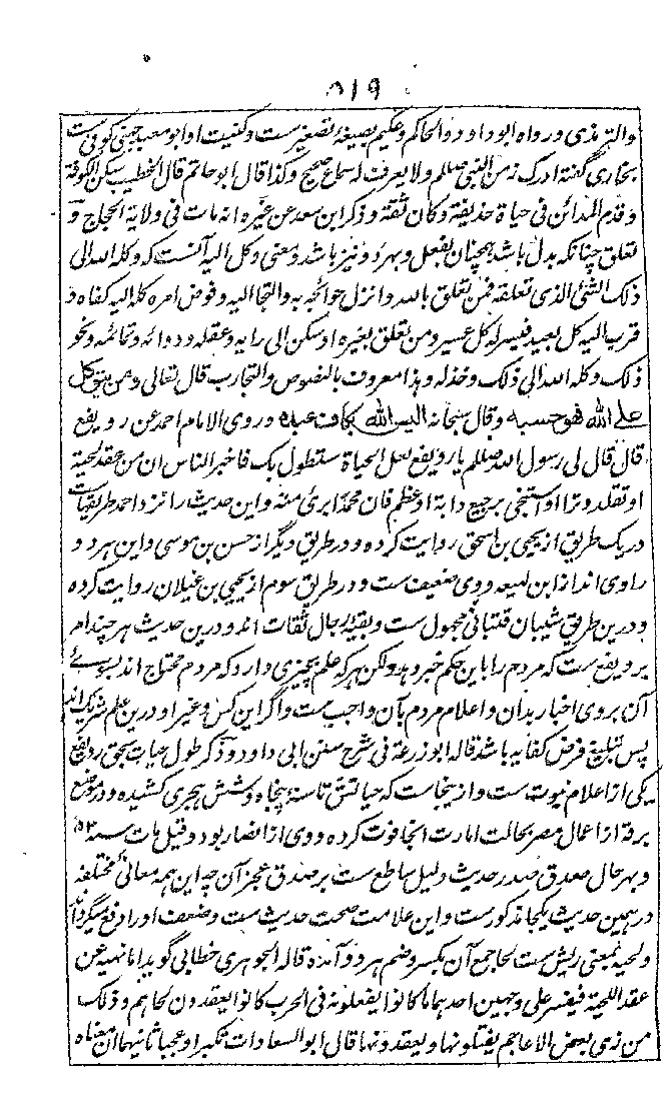 ۵۱۹
والترمذی ورواه ابو داود والحاکم وعکیم بصیغۀ تصغیرست وکنیت او ابو معبد جهنی کوفی ست
بخاری گفته ادرک زمن النبی صلعم ولا یعرف له سماع صحیح وکذا قال ابو حاتم قال الخطیب سکن الکوفة
وقدم المدائن فی حیاة حذیفة وکان ثقة وذکر ابن سعد عن غیره انه مات فی ولایة الحجاج و
تعلق چنانکه بدل باشد همچنان بفعل وبهر دو نیز باشد ومعنی وکل الیه آنست که وکله الله الی
ذلک الشئ الذی تعلقه فمن تعلق بالله وانزل حوائجه به والتجا الیه وفوض امره کله الیه کفاه و
قرب الیه کل بعید فیسر له کل عسیر ومن تعلق بغیره او سکن الی رایه وعقله ودوائه وتمائمه ونحو
ذلک وکله الله الی ذلک وخذله وهذا معروف بالنصوص والتجارب قال تعالی ومن یتوکل
علی الله فهو حسبه وقال سبحانه الیس الله بکاف عبده وروی الامام احمد عن رویفع
قال قال لی رسول الله صلعم یا رویفع لعل الحیاة ستطول بک فاخبر الناس ان من عقد لحیته
او تقلد وترا او استنجی برجیع دابة او عظم فان محمدا بری منه واین حدیث را نزد احمد طریقهاست
در یک طریق از یحیی بن اسحق روایت کرده ودر طریق دیگر از حسن بن موسی واین هر دو
راوی اند از ابن لهیعه ووی ضعیف ست ودر طریق سوم از یحیی بن غیلان روایت کرده
ودرین طریق شیبان قتبانی مجهول ست وبقیه رجال ثقات اند ودرین حدیث هر چند امر
برویفع ست که مردم را باین حکم خبر دهد ولکن هر که علم بچیزی دارد که مردم محتاج اند بسوئے
آن بروی اخبار بدان واعلام مردم بآن واجب ست واگر این کس وغیر او درین علم شریک اند
پس تبلیغ فرض کفایه باشد قاله ابو زرعة فی شرح سنن ابی داود وذکر طول حیات بحق رویفع
یکی از اعلام نبوت ست وازینجاست که حیاتش تا سنه پنجاه وشش هجری کشیده ودر موضع
برقه از اعمال مصر بحالت امارت آنجا فوت کرده ووی از انصار بود وقیل مات سنه ۵۳
وبهرحال صدق صدر حدیث دلیل ساطع ست بر صدق عجز آن چه این همه معانی مختلفه
در همین حدیث یکجا مذکورست واین علامت صحت حدیث ست وضعف او را رفع میگرداند
ولحیه بمعنی ریش ست لحا جمع آن بکسر وضم هر دو آمده قاله الجوهری خطابی گوید اما نهیه عن
عقد اللحیة فیفسر علی وجهین احدهما ما کانوا یفعلونه فی الحرب کانوا یعقدون لحاهم وذلک
من زی بعض الاعاجم یفتلونها ویعقدونها قال ابو السعادات تکبرا وعجبا ثانیهما ان معناه